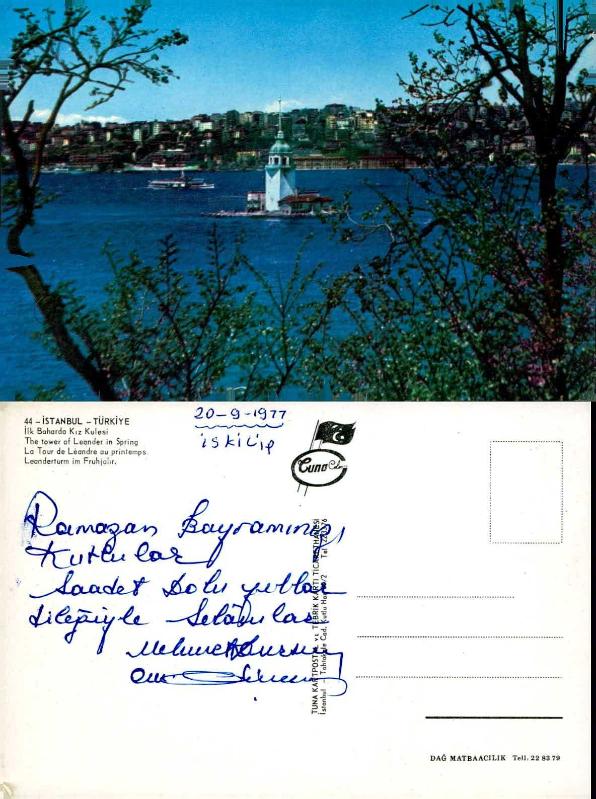 44 - İSTANBUL - TÜRKİYE
İlk Baharda Kız Kulesi
The tower of Leander in Spring
La Tour de Léandre au printemps
Leanderturm im Fruhjalır.
20-9-1977
İSKİLİP
Tuna Color
Ramazan Bayramınızı
Kutlular
Saadet Dolu yıllar
dileğiyle Selâmlar
Mehmet Dursun
TUNA KARTPOSTAL ve TEBRİK KARTI TİCARETHANESİ
İstanbul - Tahtakale Cad. Kutlu Han
Tel.
DAĞ MATBAACILIK Tell. 22 83 79